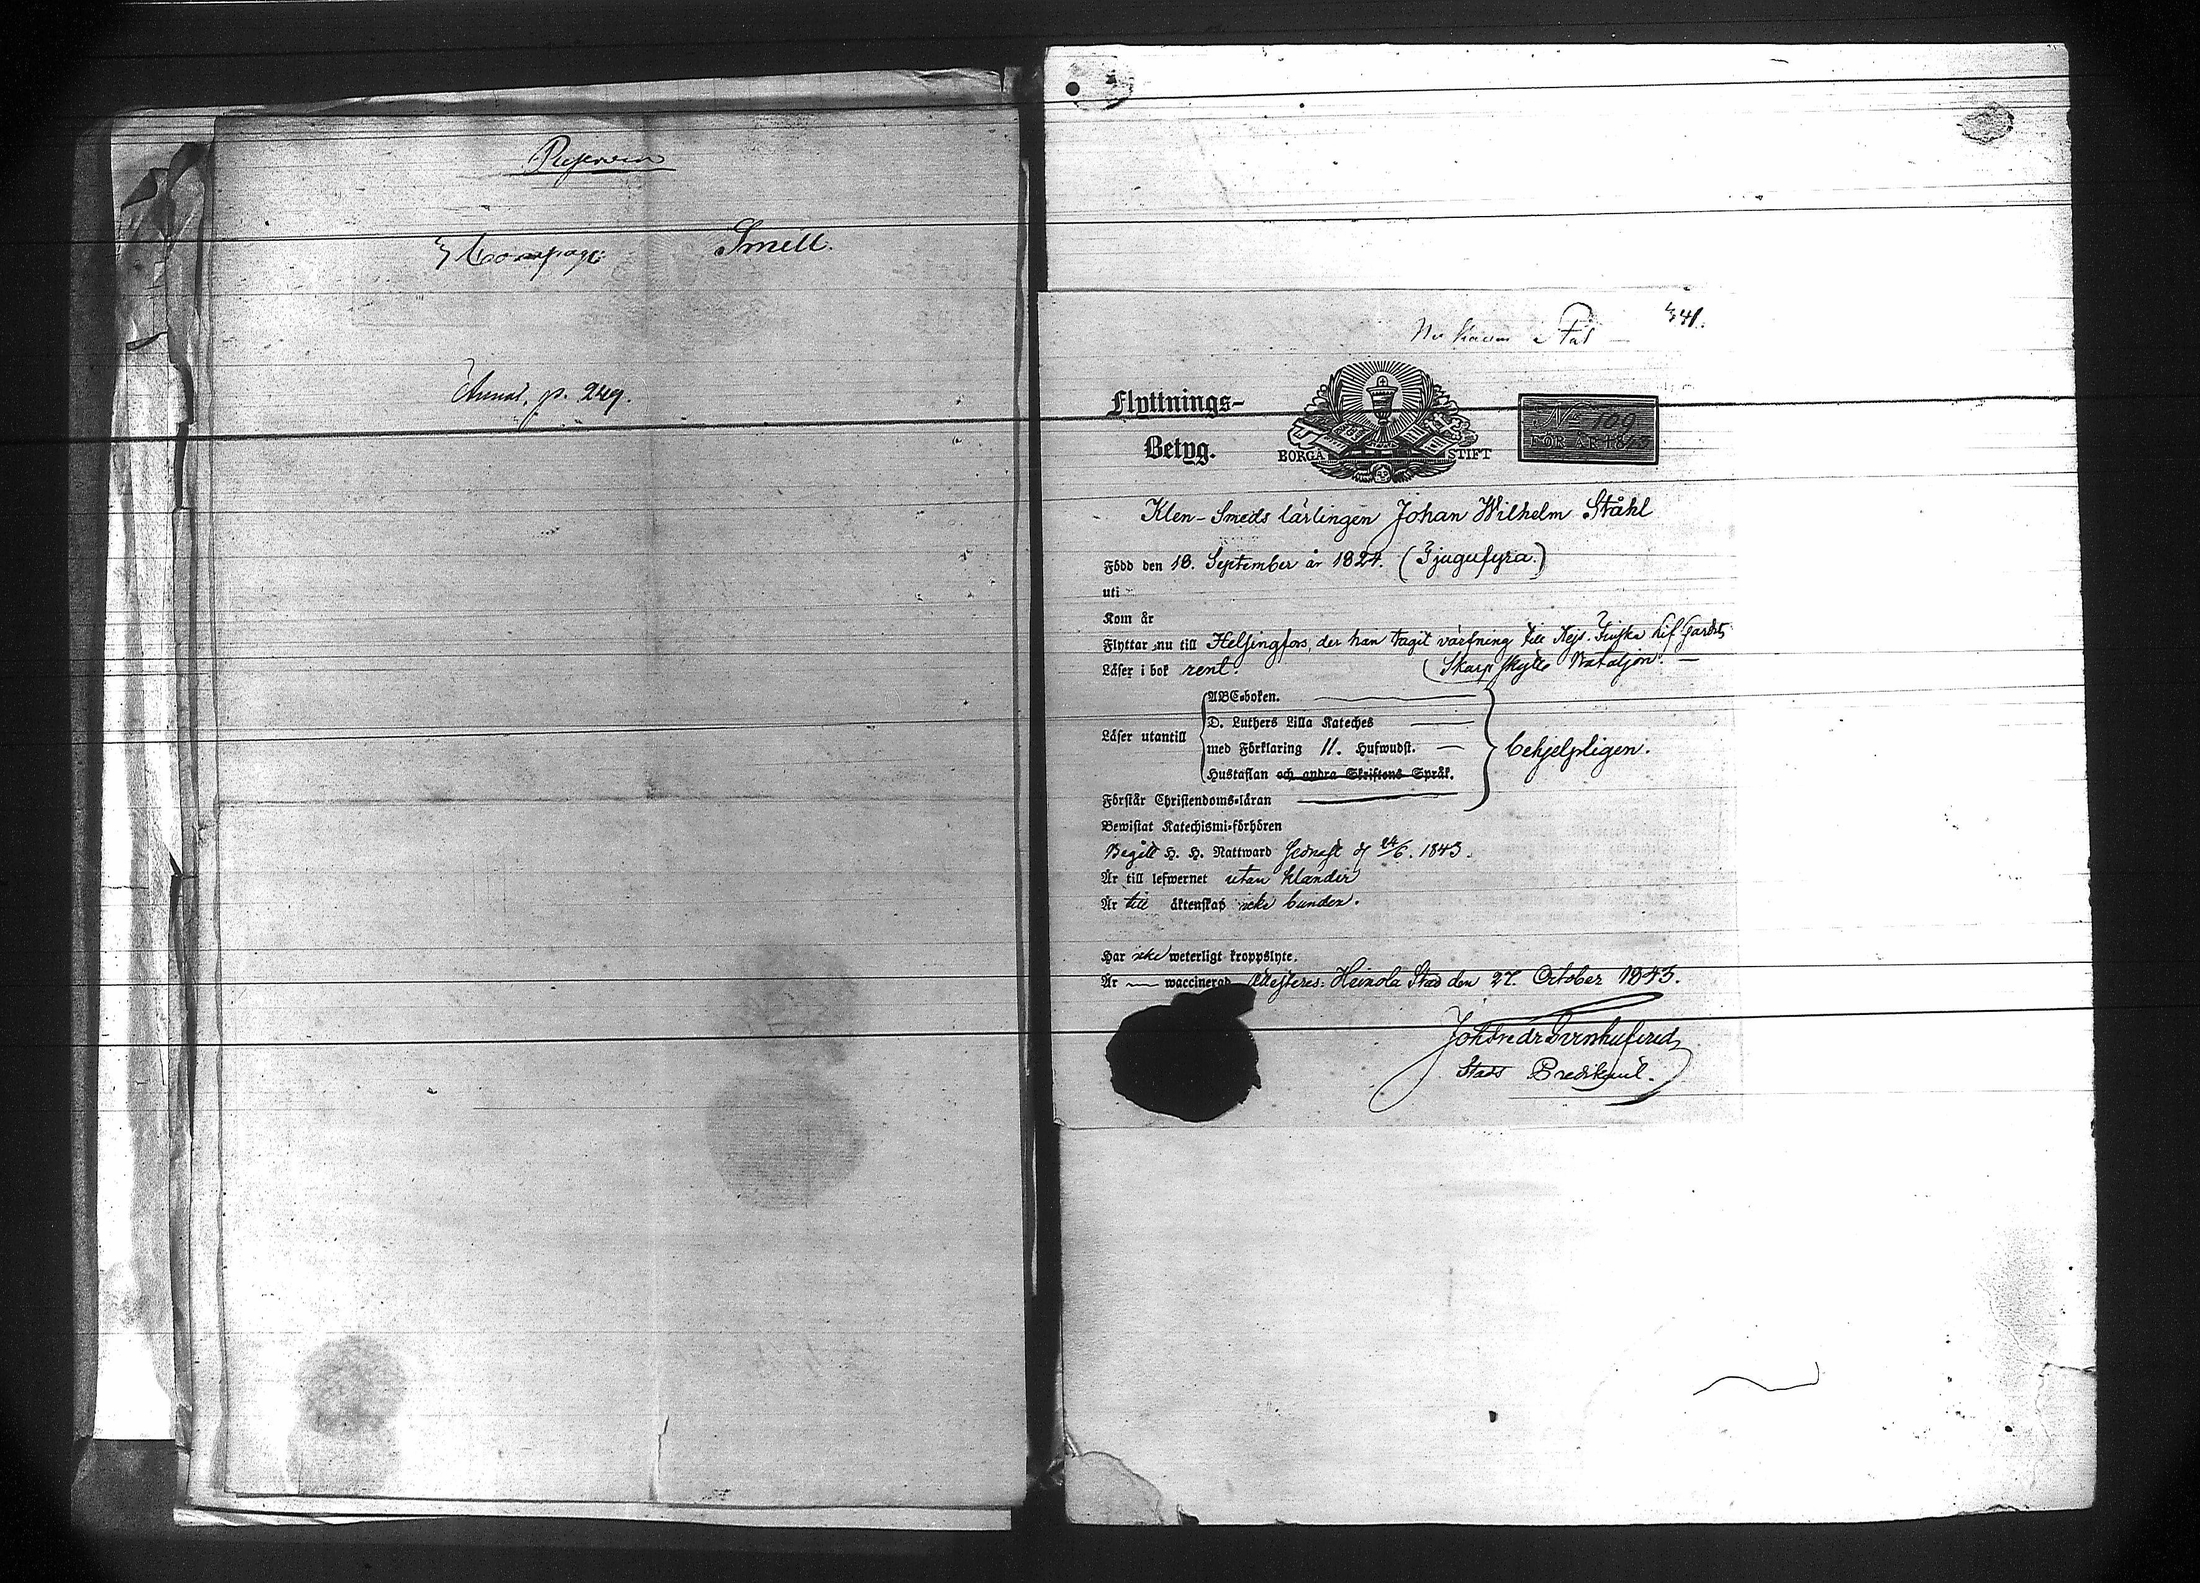 Reserven
3 Compagn:
Smell.
Annot. p. 249.
341.
Flyttnings-
Betyg.
BORGÅ STIFT
No 109
FÖR ÅR 1843
Klen-Smeds lärlingen Johan Wilhelm Ståhl
Född den 18. September år 1824. (Tjugufyra.)
uti
Kom år
Flyttar nu till Helsingfors, der han tagit värfning till Kejs. Finska Lif Gardets
Läser i bok rent. Skarp skytte Bataljon. —
ABC-boken.
D. Luthers Lilla Kateches
Läser utantill
med Förklaring 11. Hufwudst.
behjelpligen.
Hustaflan och andra Skriftens Språk.
Förstår Christendoms-läran
Bewistat Katechismi-förhören
Begått H. H. Nattward sednast d. 24/6. 1843.
Är till lefwernet utan klander
Är till äktenskap icke bunden.
Har icke weterligt kroppslyte.
Är — waccinerad Attesteras: Heinola Stad den 27. October 1843.
Stads Predikant.